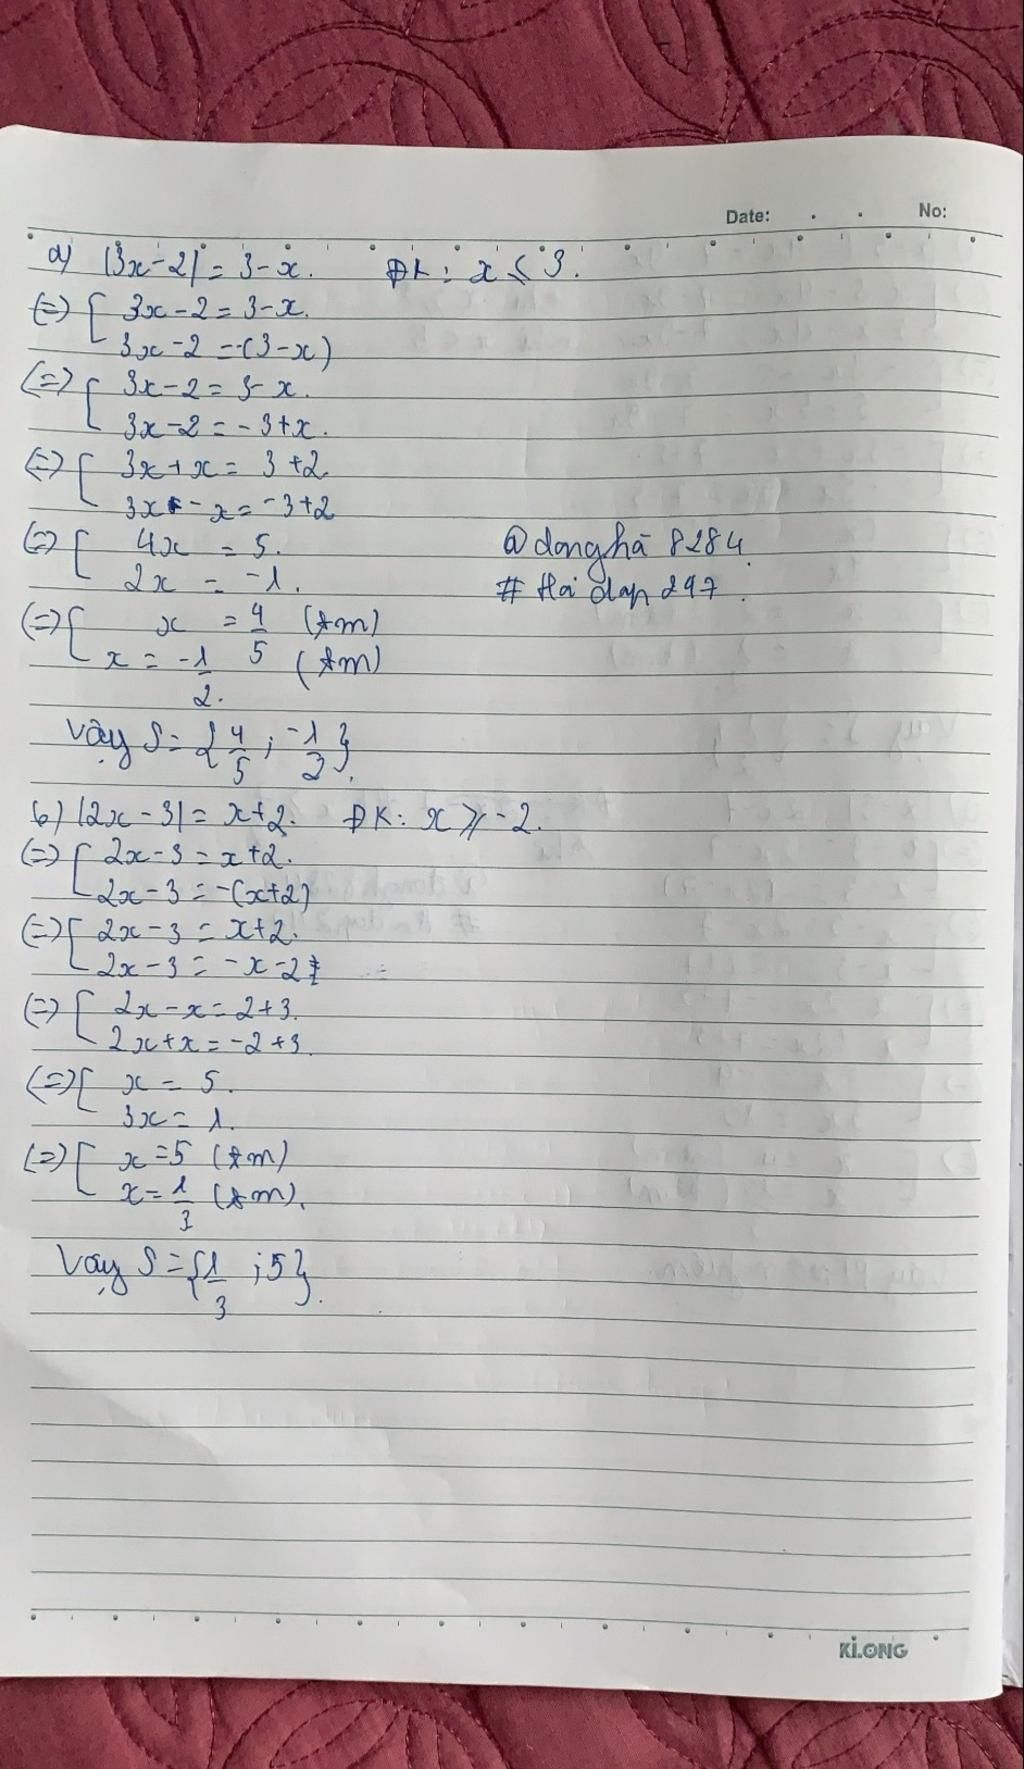 Date: . . No:
a) |3x-2| = 3-x. ĐK: x ≤ 3.
(=) [ 3x-2 = 3-x.
3x-2 = -(3-x)
(=) [ 3x-2 = 3-x.
3x-2 = -3+x.
(=) [ 3x+x = 3+2
3x-x = -3+2
(=) [ 4x = 5.
2x = -1.
@ dongha 8284.
# Hoi dap 247.
(=) [ x = 4/5 (tm)
x = -1/2. (tm)
Vậy S = {4/5; -1/2}.
b) |2x-3| = x+2. ĐK: x ⩾ -2.
(=) [ 2x-3 = x+2.
2x-3 = -(x+2)
(=) [ 2x-3 = x+2.
2x-3 = -x-2
(=) [ 2x-x = 2+3.
2x+x = -2+3.
(=) [ x = 5.
3x = 1.
(=) [ x = 5 (tm)
x = 1/3 (tm).
Vậy S = {1/3; 5}.
KLONG